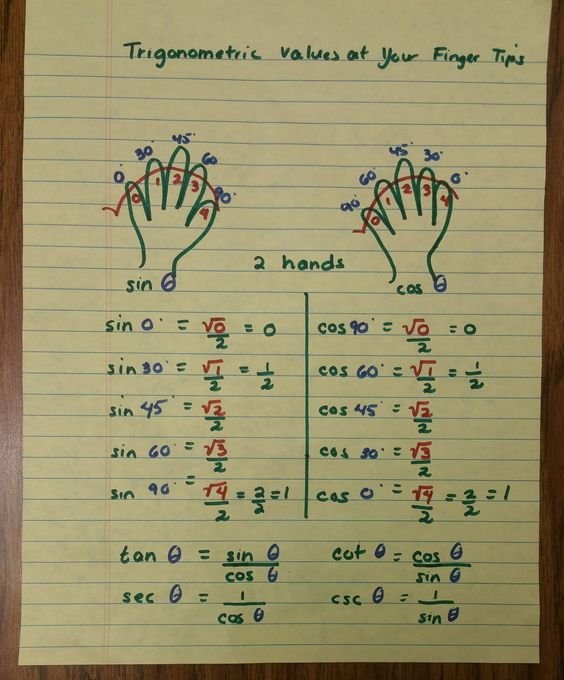 Trigonometric Values at Your Finger Tips
0° 30° 45° 60° 90°
√ 0 1 2 3 4
sin θ
90° 60° 45° 30° 0°
√ 0 1 2 3 4
cos θ
2 hands
sin 0° = √0/2 = 0
sin 30° = √1/2 = 1/2
sin 45° = √2/2
sin 60° = √3/2
sin 90° = √4/2 = 2/2 = 1
cos 90° = √0/2 = 0
cos 60° = √1/2 = 1/2
cos 45° = √2/2
cos 30° = √3/2
cos 0° = √4/2 = 2/2 = 1
tan θ = sin θ/cos θ
cot θ = cos θ/sin θ
sec θ = 1/cos θ
csc θ = 1/sin θ